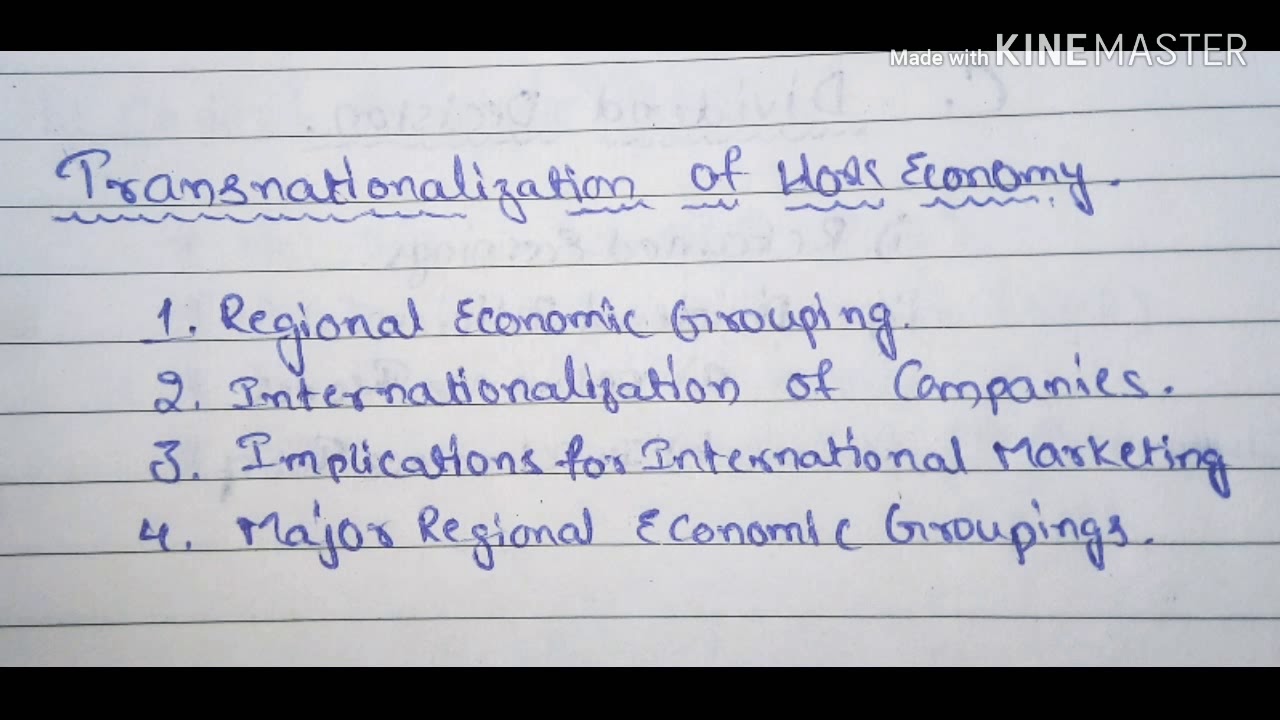 Made with KINEMASTER
Transnationalization of Economy.
1. Regional Economic Grouping.
2. Internationalization of Companies.
3. Implications for International Marketing
4. Major Regional Economic Groupings.